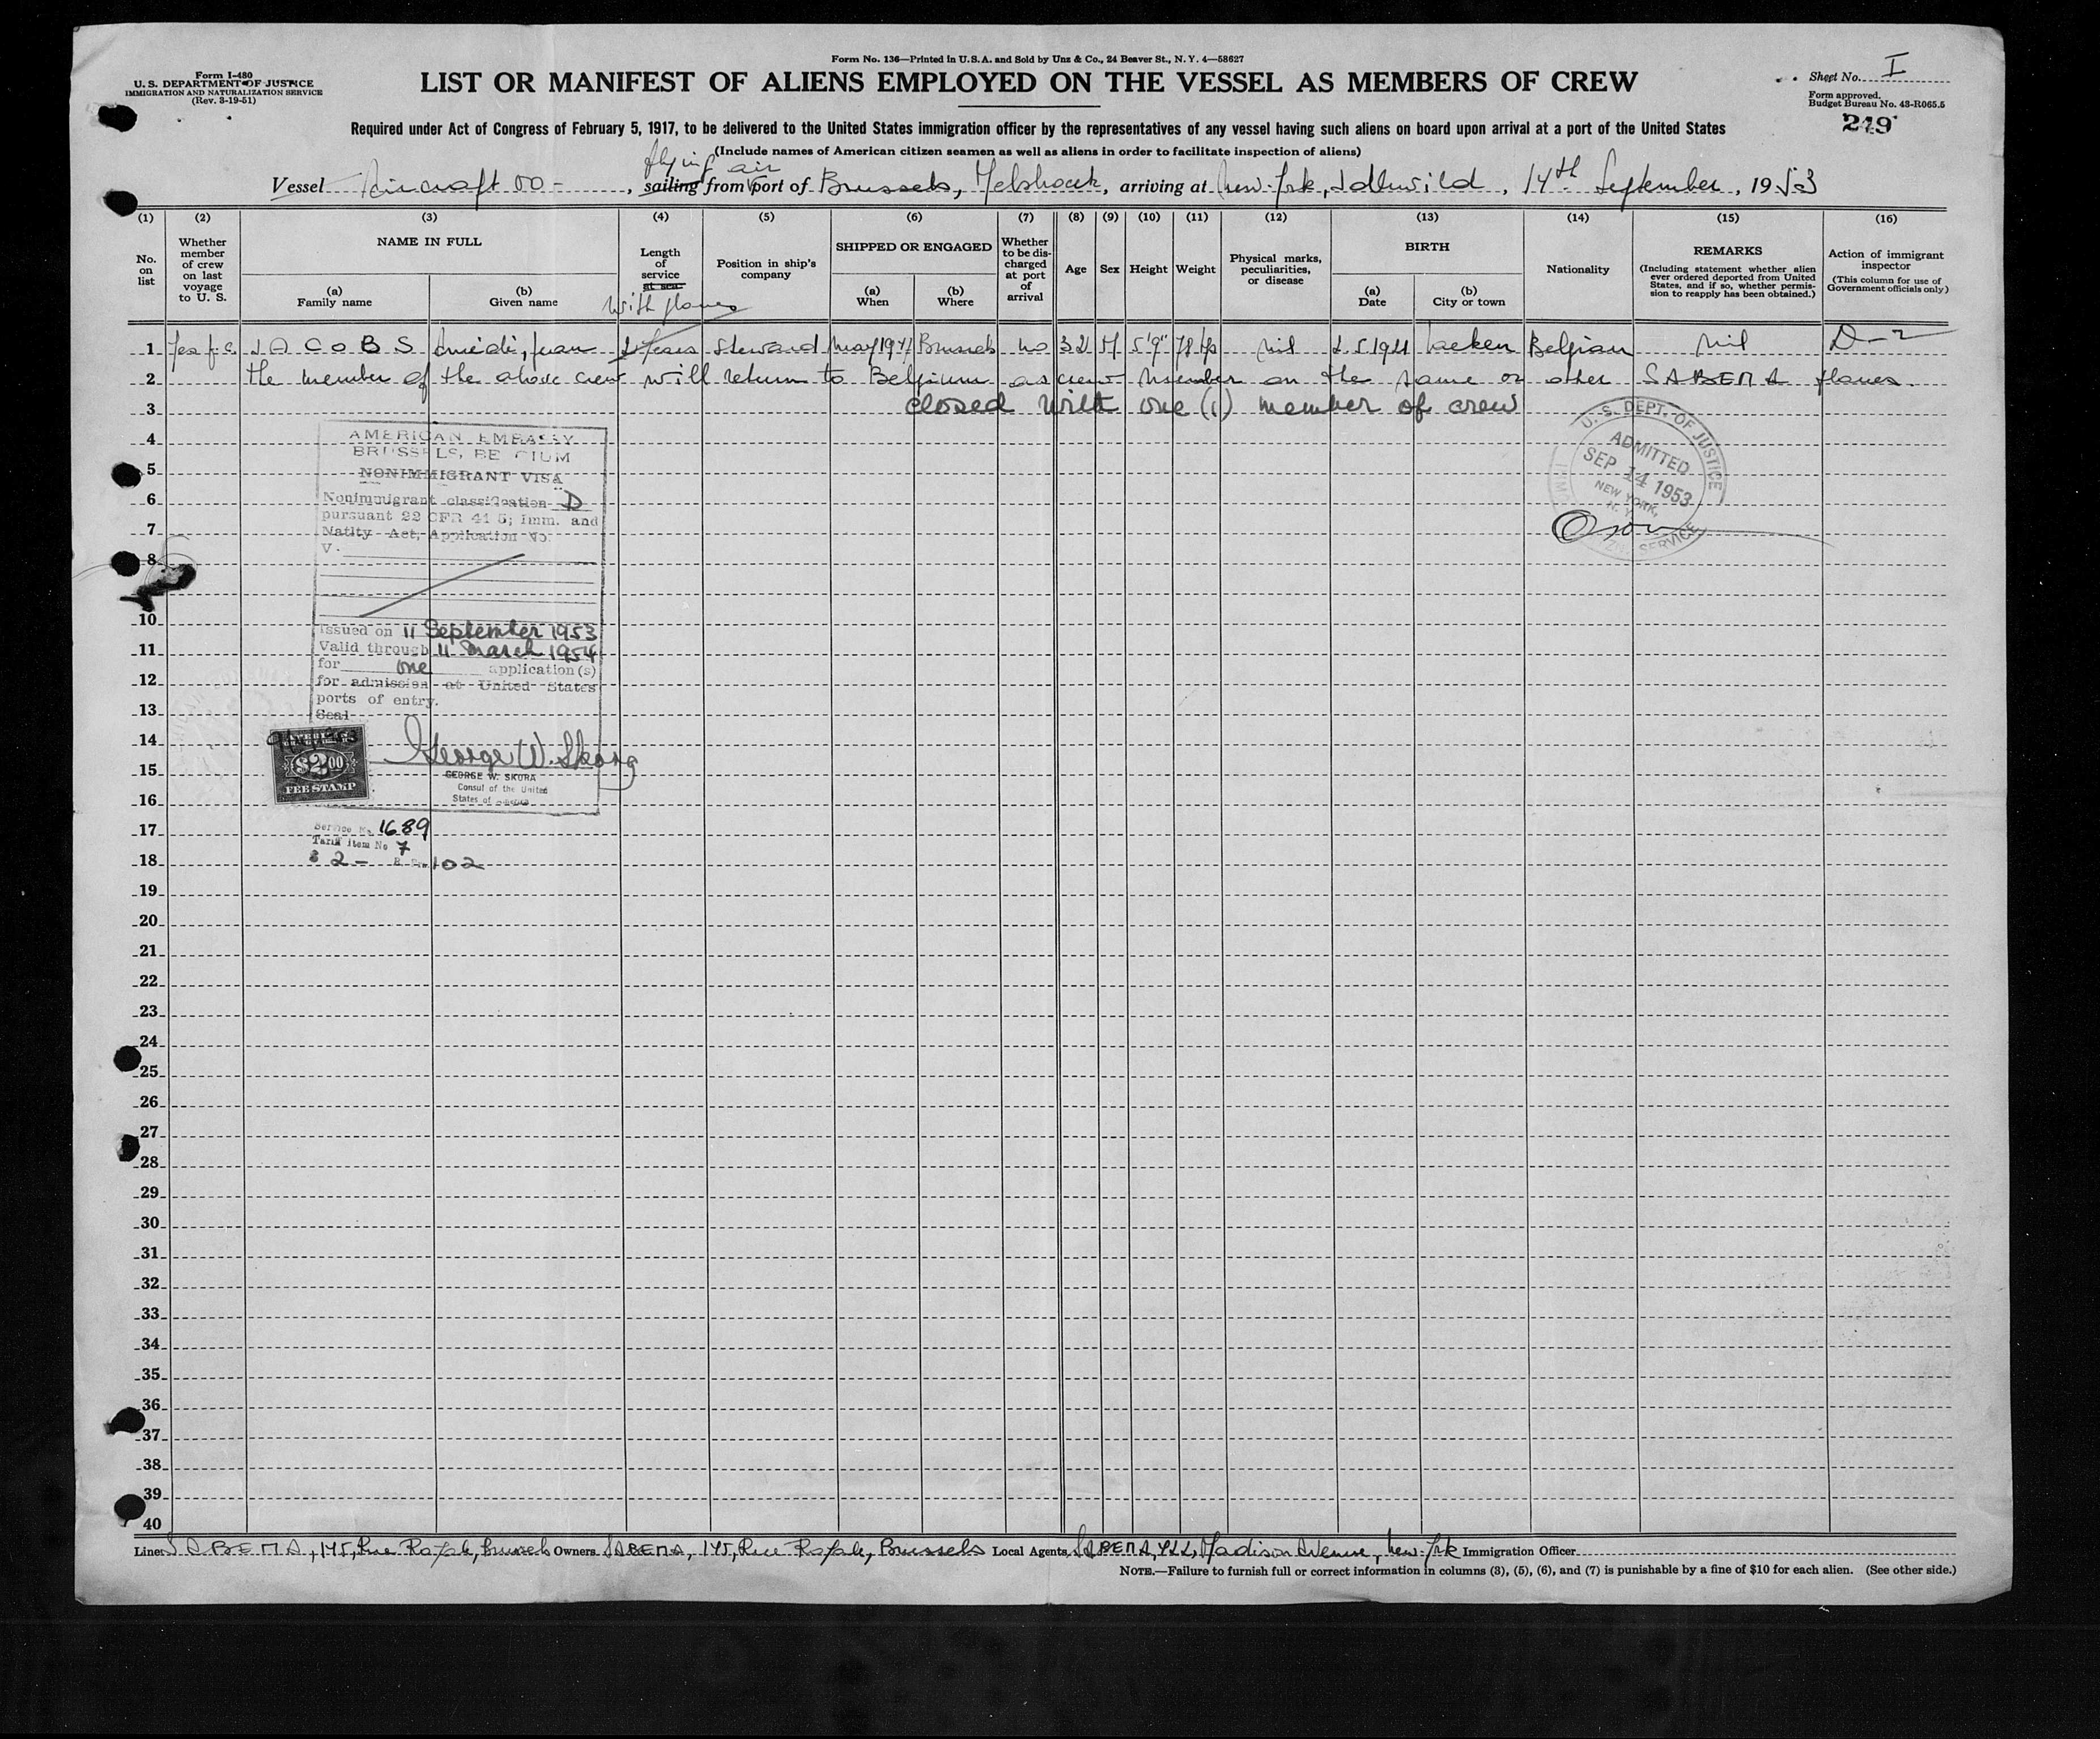 Form I-480
U. S. DEPARTMENT OF JUSTICE
IMMIGRATION AND NATURALIZATION SERVICE
(Rev. 3-19-51)
Form No. 136—Printed in U.S.A. and Sold by Unz & Co., 24 Beaver St., N. Y. 4—58627
LIST OR MANIFEST OF ALIENS EMPLOYED ON THE VESSEL AS MEMBERS OF CREW
Sheet No. I
Form approved.
Budget Bureau No. 43-R065.5
249
Required under Act of Congress of February 5, 1917, to be delivered to the United States immigration officer by the representatives of any vessel having such aliens on board upon arrival at a port of the United States
(Include names of American citizen seamen as well as aliens in order to facilitate inspection of aliens)
flying air
Vessel Aircraft OO -, sailing from port of Brussels, Melsbroek, arriving at New-York, Idlewild, 14th September, 1953
(1) (2) (3) (4) (5) (6) (7) (8) (9) (10) (11) (12) (13) (14) (15) (16)
No. on list
Whether member of crew on last voyage to U. S.
NAME IN FULL
(a) Family name
(b) Given name
Length of service at sea
with planes
Position in ship's company
SHIPPED OR ENGAGED
(a) When
(b) Where
Whether to be discharged at port of arrival
Age
Sex
Height
Weight
Physical marks, peculiarities, or disease
BIRTH
(a) Date
(b) City or town
Nationality
REMARKS
(Including statement whether alien ever ordered deported from United States, and if so, whether permission to reapply has been obtained.)
Action of immigrant inspector
(This column for use of Government officials only)
1 JACOBS Jean Years Steward May 194 Brussels no 32 M 5'9" 78 kgs nil 2.5.1921 Laeken Belgian Nil D-2
2 the member of the above crew will return to Belgium as crew member on the same or other SABENA planes.
3 closed with one (1) member of crew
4
5
6
7
8
10
11
12
13
14
15
16
17
18
19
20
21
22
23
24
25
26
27
28
29
30
31
32
33
34
35
36
37
38
39
40
AMERICAN EMBASSY
BRUSSELS, BELGIUM
NONIMMIGRANT VISA
Nonimmigrant classification D
pursuant 22 CFR 41 5; Imm. and
Natlty Act, Application No.
V.
Issued on 11 September 1953
Valid through 11 March 1954
for one application(s)
for admission at United States
ports of entry.
Seal
$2.00
FEE STAMP
George W. Skora
GEORGE W. SKORA
Consul of the United
States of America
Service No. 1689
Tariff Item No 7
$ 2 - 102
U. S. DEPT. OF JUSTICE
ADMITTED
SEP 14 1953
NEW YORK,
N. Y.
SERVICE
Line SABENA, 145, Rue Royale, Brussels Owners SABENA, 145, Rue Royale, Brussels Local Agents SABENA, 422, Madison Avenue, New-York Immigration Officer
NOTE.—Failure to furnish full or correct information in columns (3), (5), (6), and (7) is punishable by a fine of $10 for each alien. (See other side.)